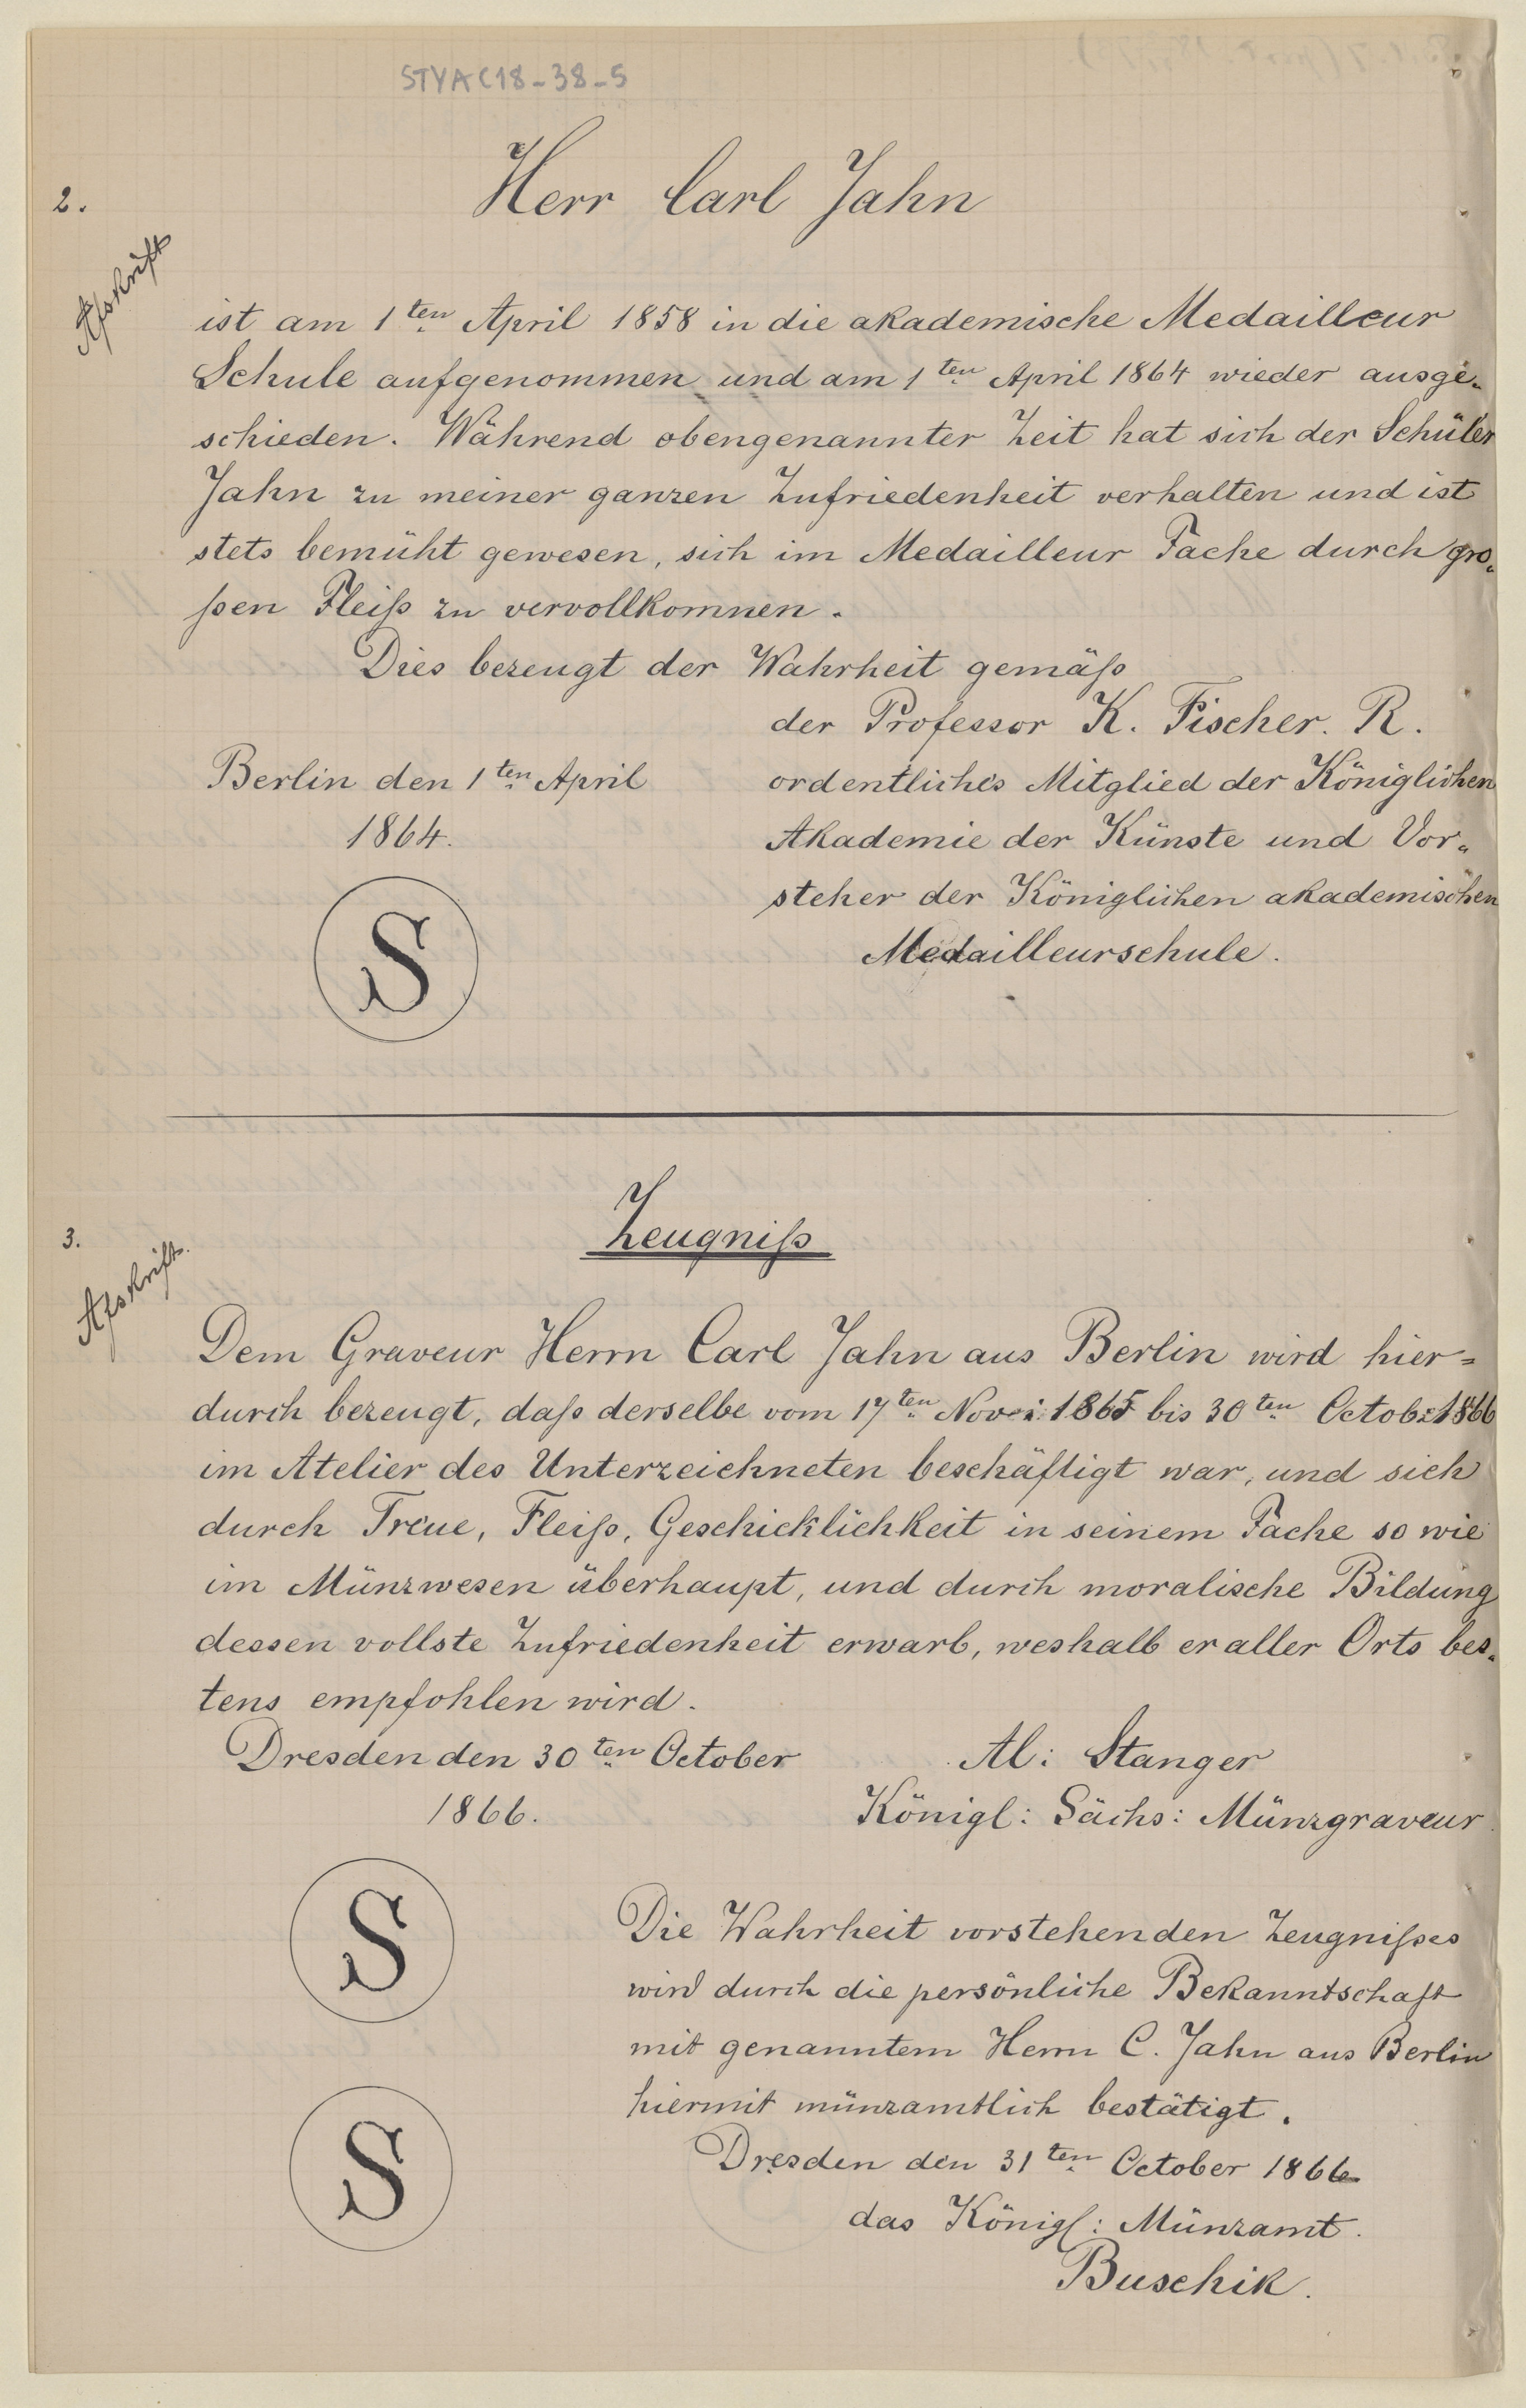 STYAC18-38-5
2.
Herr Carl Jahn
Afskrift
ist am 1ten April 1858 in die akademische Medailleur
Schule aufgenommen und am 1ten April 1864 wieder ausge-
schieden. Während obengenannter Zeit hat sich der Schüler
Jahn zu meiner ganzen Zufriedenheit verhalten und ist
stets bemüht gewesen, sich im Medailleur Fache durch gro-
ßen Fleiß zu vervollkomnen.
Dies bezeugt der Wahrheit gemäß
der Professor K. Fischer. R.
Berlin den 1ten April
1864.
ordentliches Mitglied der Königlichen
Akademie der Künste und Vor-
steher der Königlichen akademischen
Medailleurschule.
S
3.
Zeugniß
Afskrift.
Dem Graveur Herrn Carl Jahn aus Berlin wird hier=
durch bezeugt, daß derselbe vom 17ten Nov: 1865 bis 30ten Octob: 1866
im Atelier des Unterzeichneten beschäftigt war, und sich
durch Treue, Fleiß, Geschicklichkeit in seinem Fache so wie
im Münzwesen überhaupt, und durch moralische Bildung
dessen vollste Zufriedenheit erwarb, weshalb er aller Orts bes-
tens empfohlen wird.
Dresden den 30ten October
1866.
Al: Stanger
Königl: Sächs: Münzgraveur
S
Die Wahrheit vorstehenden Zeugnißes
wird durch die persönliche Bekanntschaft
mit genanntem Herrn C. Jahn aus Berlin
hiermit münzamtlich bestätigt.
S
Dresden den 31ten October 1866
das Königl: Münzamt.
Buschik.